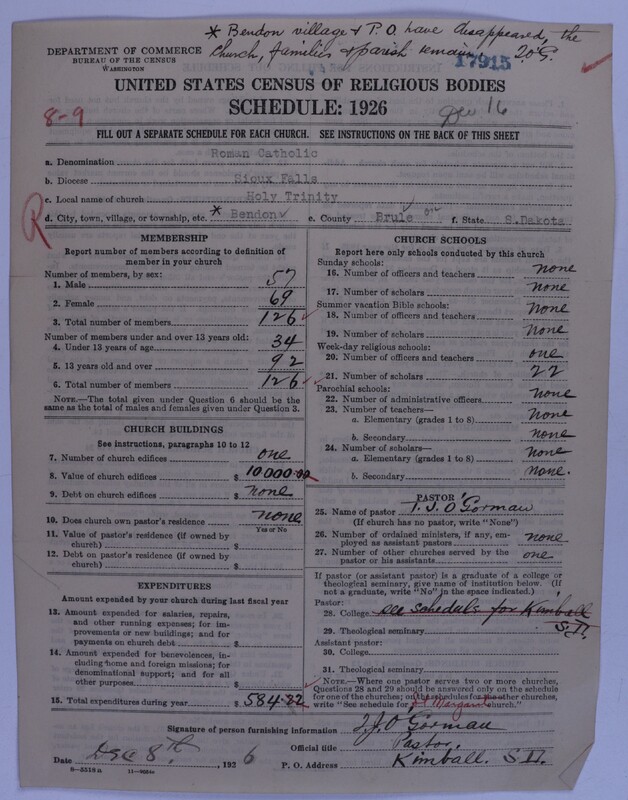 * Bendon village & P.O. have disappeared, the
Church, families & parish remain. JoG.
17915
DEPARTMENT OF COMMERCE
BUREAU OF THE CENSUS
WASHINGTON
UNITED STATES CENSUS OF RELIGIOUS BODIES
SCHEDULE: 1926
8-9
Dec 16
FILL OUT A SEPARATE SCHEDULE FOR EACH CHURCH. SEE INSTRUCTIONS ON THE BACK OF THIS SHEET
a. Denomination Roman Catholic
b. Diocese Sioux Falls
c. Local name of church Holy Trinity
d. City, town, village, or township, etc. * Bendon e. County Brule f. State S.Dakota
R
MEMBERSHIP
Report number of members according to definition of
member in your church
Number of members, by sex:
1. Male 57
2. Female 69
3. Total number of members 126
Number of members under and over 13 years old:
4. Under 13 years of age 34
5. 13 years old and over 92
6. Total number of members 126
NOTE.—The total given under Question 6 should be
the same as the total of males and females given under Question 3.
CHURCH BUILDINGS
See instructions, paragraphs 10 to 12
7. Number of church edifices one
8. Value of church edifices $ 10000.00
9. Debt on church edifices $ none
10. Does church own pastor's residence none
Yes or No
11. Value of pastor's residence (if owned by
church) $
12. Debt on pastor's residence (if owned by
church) $
EXPENDITURES
Amount expended by your church during last fiscal year
13. Amount expended for salaries, repairs,
and other running expenses; for im-
provements or new buildings; and for
payments on church debt $
14. Amount expended for benevolences, in-
cluding home and foreign missions; for
denominational support; and for all
other purposes $
15. Total expenditures during year $ 584.82
CHURCH SCHOOLS
Report here only schools conducted by this church
Sunday schools:
16. Number of officers and teachers none
17. Number of scholars none
Summer vacation Bible schools:
18. Number of officers and teachers none
19. Number of scholars none
Week-day religious schools:
20. Number of officers and teachers one
21. Number of scholars 22
Parochial schools:
22. Number of administrative officers none
23. Number of teachers—
a. Elementary (grades 1 to 8) none
b. Secondary none
24. Number of scholars—
a. Elementary (grades 1 to 8) none
b. Secondary none.
PASTOR
25. Name of pastor T. J. O'Gorman
(If church has no pastor, write "None")
26. Number of ordained ministers, if any, em-
ployed as assistant pastors none
27. Number of other churches served by the
pastor or his assistants one
If pastor (or assistant pastor) is a graduate of a college or
theological seminary, give name of institution below. (If
not a graduate, write "No" in the space indicated.)
Pastor:
28. College see schedule for Kimball
S.D.
29. Theological seminary
Assistant pastor:
30. College
31. Theological seminary
NOTE.—Where one pastor serves two or more churches,
Questions 28 and 29 should be answered only on the schedule
for one of the churches; on the schedules for the other churches,
write "See schedule for St Margaret church."
Signature of person furnishing information T.J. O'Gorman
Official title Pastor.
Date Dec 8th, 1926 P. O. Address Kimball. S.D.
8-5518 a